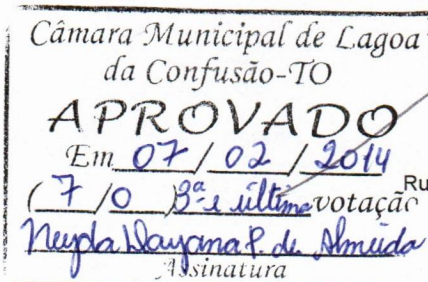 Câmara Municipal de Lagoa
da Confusão-TO
APROVADO
Em 07 / 02 / 2014
( 7 / 0 ) 3ª e última votação
Ru
Neyda Dayana P. de Almeida
Assinatura